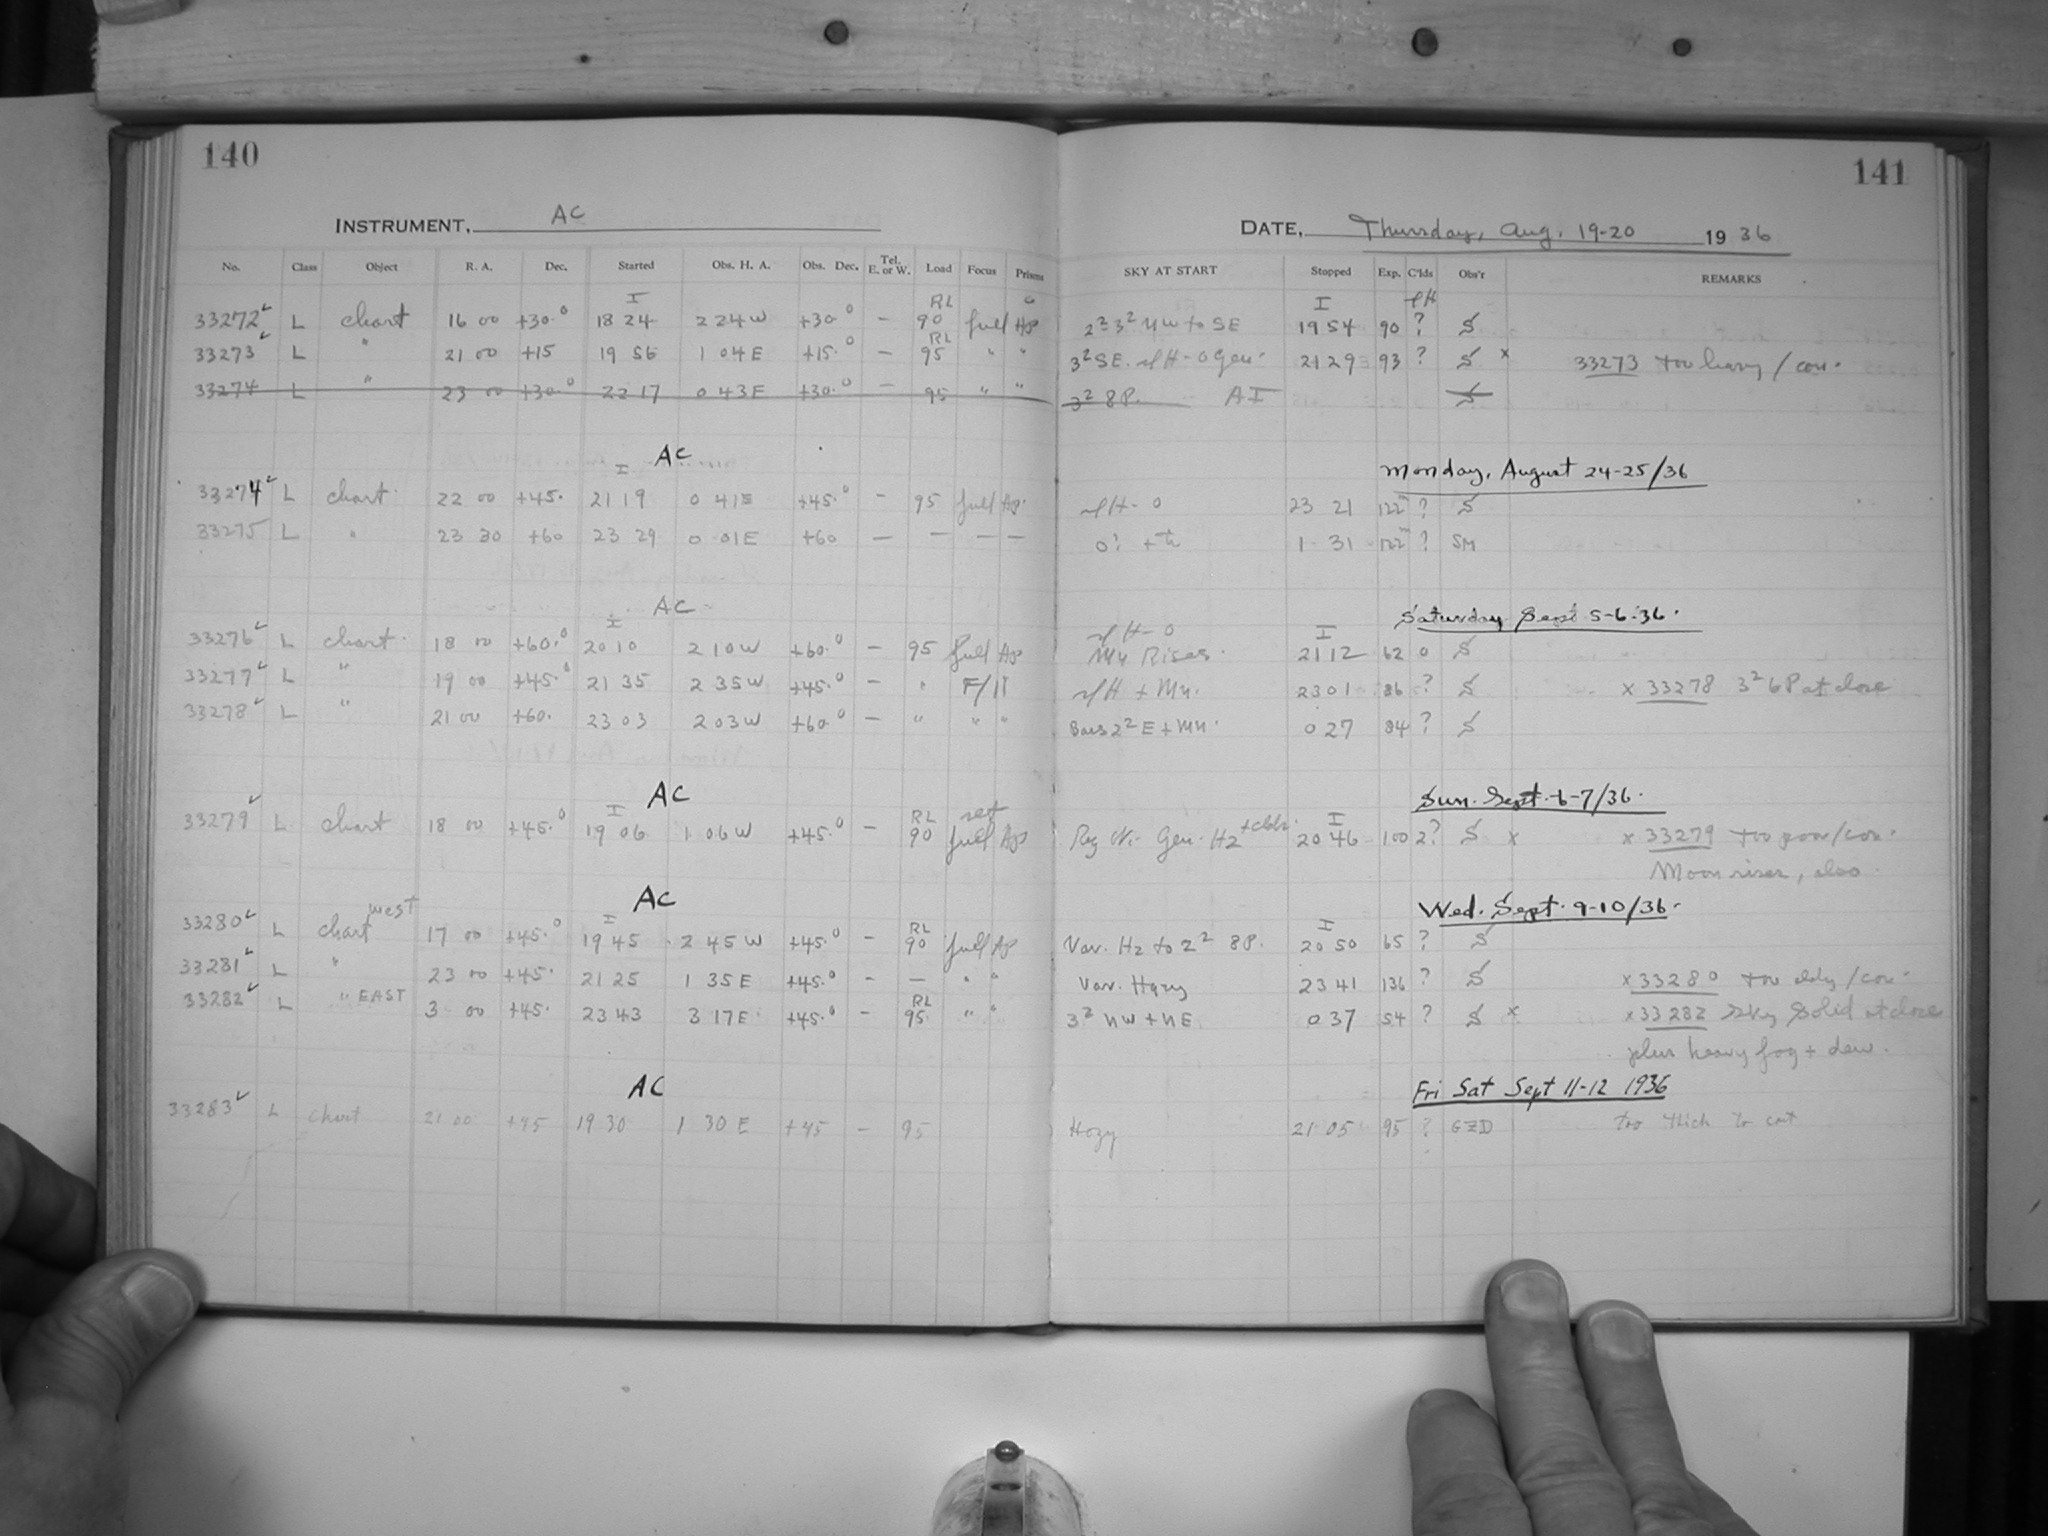 140
141
INSTRUMENT, AC
DATE, Thursday, Aug. 19-20 1936
No. Class Object R. A. Dec. Started Obs. H. A. Obs. Dec. Tel. E. or W. Load Focus Prisms SKY AT START Stopped Exp. C'lds Obs'r REMARKS
33272 L chart 16 00 +30.° 18 24 2 24 W +30° - RL 90 full 2² 3² NW to SE 19 54 90 ? S
33273 L " 21 00 +15 19 56 1 04 E +15.° - RL 95 " " 3² SE. 21 29 93 ? S x 33273 too heavy / con.
33274 L " 23 00 +30° 22 17 0 43 E +30.° - 95 " " 3² 8P. AI S
AC
Monday, August 24-25/36
33274 L chart. 22 00 +45. 21 19 0 41 E +45.° - 95 full 23 21 122 ? S
33275 L " 23 30 +60 23 29 0 01 E +60 — — — — 1 31 122 ? SM
AC
Saturday Sept 5-6-36.
33276 L chart. 18 00 +60.° 20 10 2 10 W +60.° - 95 full Mn Rises. 21 12 62 0 S
33277 L " 19 00 +45.° 21 35 2 35 W +45.° - " F/11 + Mn. 23 01 86 ? S x 33278 3² 6P at close
33278 L " 21 00 +60. 23 03 2 03 W +60.° - " " " Bars 2² E + Mn. 0 27 84 ? S
AC
Sun. Sept. 6-7/36.
33279 L chart 18 00 +45.° 19 06 1 06 W +45.° - RL 90 set full Gen. Hz 20 46 100 2? S x x 33279 too poor/con.
Moon rises, also
AC
Wed. Sept. 9-10/36.
33280 L chart west 17 00 +45.° 19 45 2 45 W +45.° - RL 90 full Var. Hz to 2² 8P. 20 50 65 ? S
33281 L " 23 00 +45. 21 25 1 35 E +45.° - — " " Var. Hazy 23 41 136 ? S x 33280 too cldy/con.
33282 L " EAST 3 00 +45. 23 43 3 17 E +45.° - RL 95. " " 3² NW + NE 0 37 54 ? S x x 33282 Sky Solid at close
plus heavy fog + dew.
AC
Fri Sat Sept 11-12 1936
33283 L chart 21 00 +45 19 30 1 30 E +45 - 95 Hazy 21 05 95 ? GZD too thick to